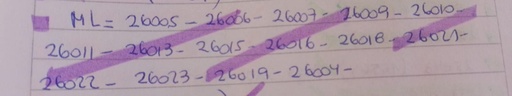 ML = 26005 - 26006 - 26007 - 26009 - 26010 -
26011 - 26013 - 26015 - 26016 - 26018 - 26021 -
26022 - 26023 - 26019 - 26004 -